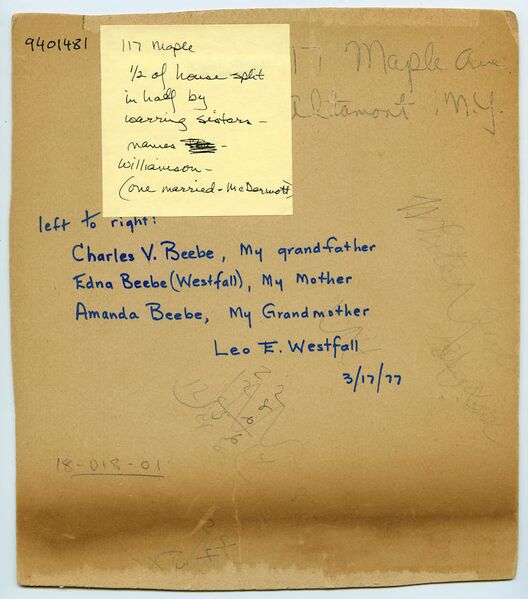 9401481
117 Maple
1/2 of house split
in half by
warring sisters -
names -
Williamson -
(one married - McDermott)
17 Maple Ave.
Altamont, N.Y.
left to right:
Charles V. Beebe, My grandfather
Edna Beebe (Westfall), My Mother
Amanda Beebe, My Grandmother
Leo E. Westfall
3/17/77
18-018-01